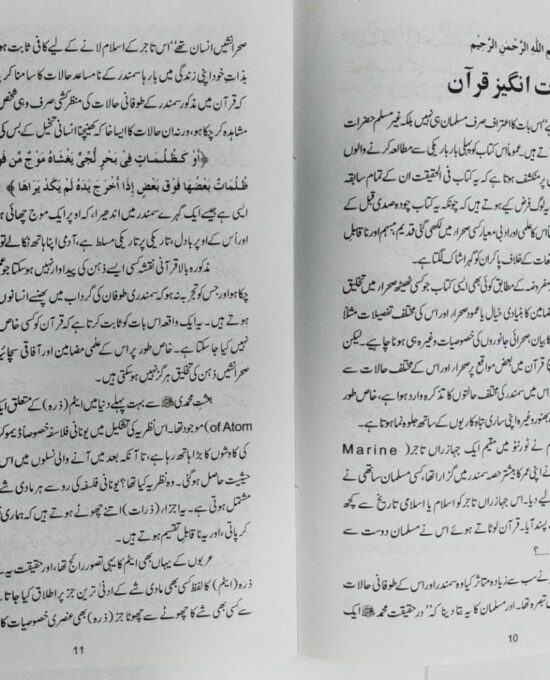 م اللهِ الرَّحْمٰنِ الرَّحِيْمِ
ت انگیز قرآن
اس بات کا اعتراف صرف مسلمان ہی نہیں بلکہ غیر مسلم حضرات
تے ہیں۔ عموماً اس کتاب کو پہلی بار باریکی سے مطالعہ کرنے والوں
پر منکشف ہوتا ہے کہ یہ کتاب فی الحقیقت ان کے تمام سابقہ
یہ لوگ فرض کیے ہوتے ہیں کہ چونکہ یہ کتاب چودہ صدی قبل کے
اس کا علمی اور ادبی معیار کسی صحرا میں لکھی گئی قدیم، مبہم اور ناقابلِ
عات کے خلاف پا کر ان کو گہرا شاک لگتا ہے۔
مفروضہ کے مطابق کوئی بھی ایسی کتاب جو کسی ٹھیٹھ صحرا میں تخلیق
مضامین کا بنیادی خیال یا عمود صحرا اور اس کی مختلف تفصیلات مثلاً
کا بیان، صحرائی جانوروں کی خصوصیات وغیرہ ہی ہونا چاہیے۔ لیکن
قرآن میں بعض مواقع پر صحرا اور اس کے مختلف حالات سے
اس میں سمندر کی مختلف حالتوں کا تذکرہ وارد ہوا ہے، خاص طور
بھنور وغیرہ اپنی ساری تباہ کاریوں کے ساتھ جلوہ نما ہوتا ہے۔
م نے ٹورنٹو میں مقیم ایک جہازراں تاجر( Marine
نے اپنی عمر کا بیشتر حصہ سمندر میں گزارا تھا، کسی مسلمان ساتھی نے
لیے دیا۔ اس جہازراں تاجر کو اسلام یا اسلامی تاریخ سے کچھ
پسند آیا۔ قرآن لوٹاتے ہوئے اس نے مسلمان دوست سے
....؟
نے سب سے زیادہ متاثر کیا وہ سمندر اور اس کے طوفانی حالات
تبصرہ تھا۔ اور مسلمان کا یہ بتا دینا کہ "در حقیقت محمد ﷺ ایک
10
صحرا نشیں انسان تھے" اس تاجر کے اسلام لانے کے لیے کافی ثابت ہو
بذاتِ خود اپنی زندگی میں بارہا سمندر کے نامساعد حالات کا سامنا کر
کہ قرآن میں مذکور سمندر کے طوفانی حالات کی منظر کشی صرف وہی شخص
مشاہدہ کر چکا ہو، ورنہ ان حالات کا ایسا خاکہ کھینچنا انسانی تخیل کے بس کی
﴿أَوْ كَظُلُمَاتٍ فِي بَحْرٍ لُّجِّيٍّ يَغْشَاهُ مَوْجٌ مِّن فَو
ظُلُمَاتٌ بَعْضُهَا فَوْقَ بَعْضٍ إِذَا أَخْرَجَ يَدَهُ لَمْ يَكَدْ يَرَاهَا﴾
ایسی ہے جیسے ایک گہرے سمندر میں اندھیرا، کہ اوپر ایک موج چھائی ہو
اور اُس کے اوپر بادل، تاریکی پر تاریکی مسلط ہے، آدمی اپنا ہاتھ نکالے تو
مذکورہ بالا قرآنی نقشہ کسی ایسے ذہن کی پیداوار نہیں ہو سکتا جو
چکا ہو اور جس کو تجربہ نہ ہو کہ سمندری طوفان کی گرداب میں پھنسے انسانوں
ہوتے ہیں۔ یہ ایک واقعہ اس بات کو ثابت کرتا ہے کہ قرآن کو کسی خاص
نہیں کیا جا سکتا ہے۔ خاص طور پر اس کے علمی مضامین اور آفاقی سچائیا
صحرا نشیں ذہن کی تخلیق ہرگز نہیں ہو سکتی ہیں۔
بعثتِ محمدی ﷺ سے بہت پہلے دنیا میں ایٹم (ذرہ) کے متعلق ایک
of Atom) موجود تھا۔ اس نظریہ کی تشکیل میں یونانی فلاسفہ خصوصاً ڈیموکر
کی کاوشوں کا بڑا ہاتھ رہا ہے، تا آنکہ بعد میں آنے والی نسلوں میں اس
حیثیت حاصل ہو گئی۔ وہ نظریہ کیا تھا؟ یونانی فلسفہ کی رو سے ہر مادی شے
مشتمل ہوتی ہے۔ یہ اجزاء (ذرات) اتنے چھوٹے ہوتے ہیں کہ ہماری
کر پاتی، اور یہ ناقابلِ تقسیم ہوتے ہیں۔
عربوں کے یہاں بھی ایٹم کا یہی تصور رائج تھا، اور حقیقت یہ ہے
ذرہ (ایٹم) کا لفظ کسی بھی مادی شے کے ادنیٰ ترین جز پر اطلاق کیا جاتا
سے کسی بھی شے کا چھوٹے سے چھوٹا جز (ذرہ) بھی عنصری خصوصیات کا
11